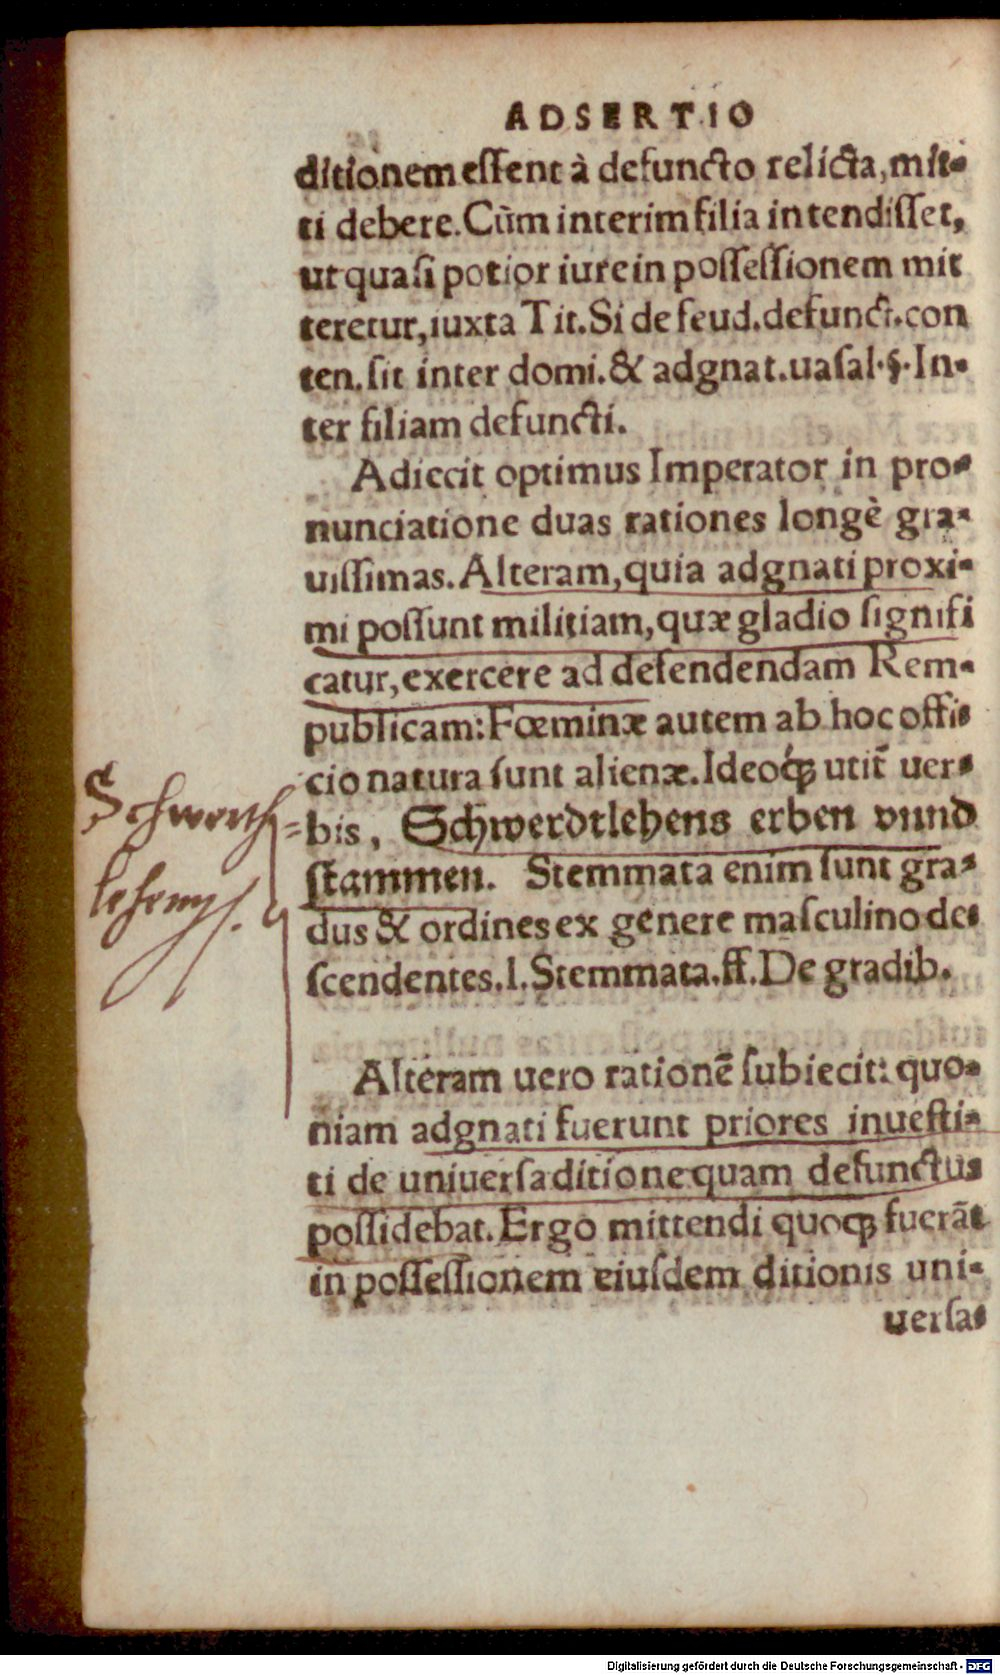 ADSERTIO
ditionem essent à defuncto relicta, mit-
ti debere. Cùm interim filia intendisset,
ut quasi potior iure in possessionem mit
teretur, iuxta Tit. Si de feud. defunct. con
ten. sit inter domi. & adgnat. uasal. §. In-
ter filiam defuncti.
Adiecit optimus Imperator in pro-
nunciatione duas rationes longè gra-
uissimas. Alteram, quia adgnati proxi-
mi possunt militiam, quæ gladio signifi
catur, exercere ad defendendam Rem-
publicam: Fœminæ autem ab hoc offi-
cio natura sunt alienæ. Ideoq́; utit̃ uer-
bis, Schwerdtlehens erben vnnd
Schwerth
stammen. Stemmata enim sunt gra-
dus & ordines ex genere masculino de-
scendentes. l. Stemmata. ff. De gradib.
Alteram uero rationē subiecit: quo-
niam adgnati fuerunt priores inuesti-
ti de uniuersa ditione quam defunctus
possidebat. Ergo mittendi quoq; fuerāt
in possessionem eiusdem ditionis uni-
uersa-
Digitalisierung gefördert durch die Deutsche Forschungsgemeinschaft - DFG